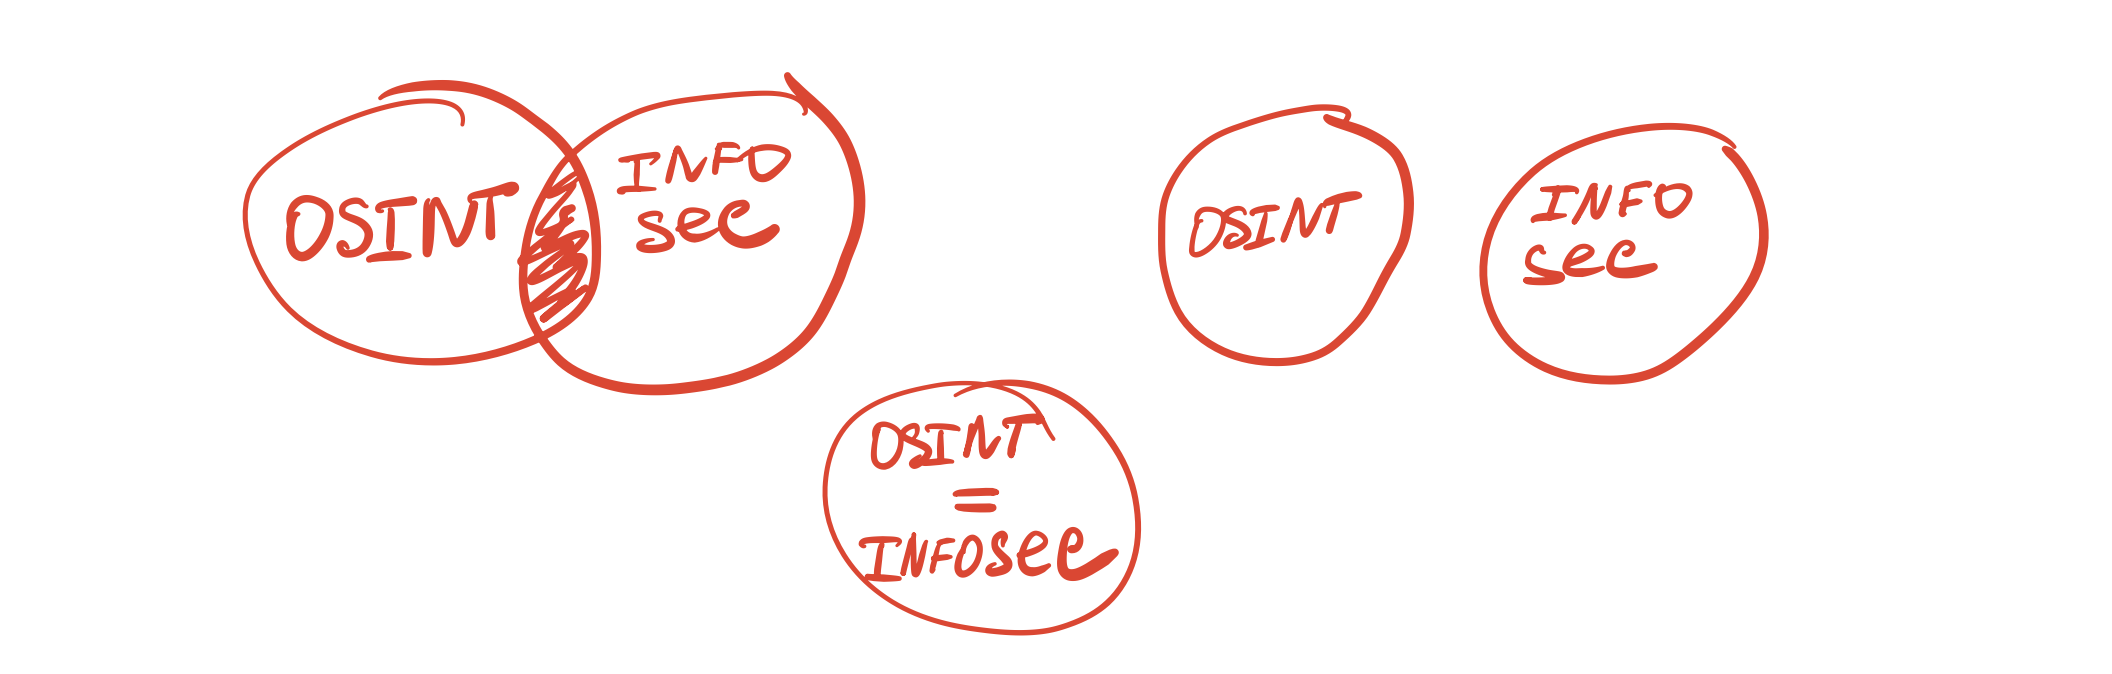 OSINT
INFO
sec
OSINT
INFO
sec
OSINT
=
INFOsec